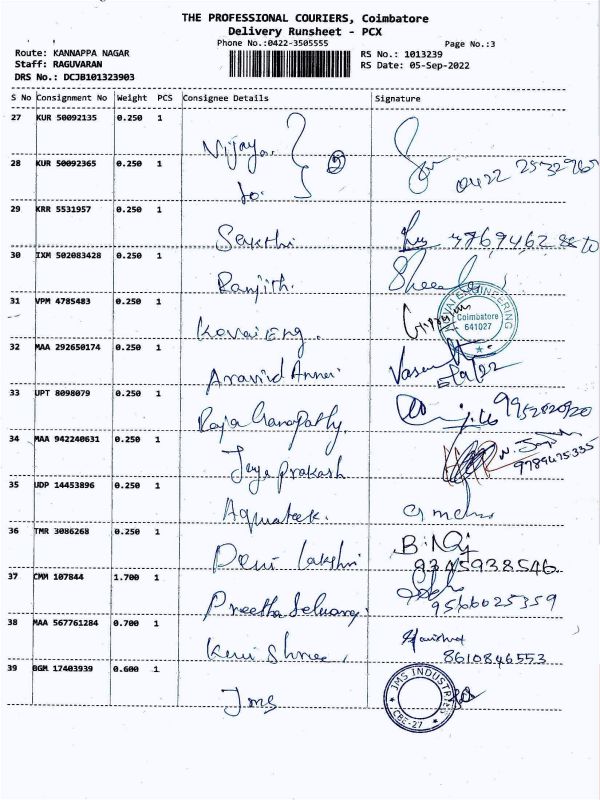 THE PROFESSIONAL COURIERS, Coimbatore
Delivery Runsheet - PCX
Phone No.:0422-3505555
Page No.:3
Route: KANNAPPA NAGAR
RS No.: 1013239
Staff: RAGUVARAN
RS Date: 05-Sep-2022
DRS No.: DCJB101323903
S No Consignment No Weight PCS Consignee Details Signature
27 KUR 50092135 0.250 1 Vijaya. 2
28 KUR 50092365 0.250 1 Do. 0422
29 KRR 5531957 0.250 1 Sakthi
30 IXM 502083428 0.250 1 Ranjith.
31 VPM 4785483 0.250 1 Kovai Eng. ENGINEERING Coimbatore 641027
32 MAA 292650174 0.250 1 Aravind
33 UPT 8098079 0.250 1 Raja Ganapathy. 9952820920
34 MAA 942240631 0.250 1 Jaya prakash 9789475335
35 UDP 14453896 0.250 1 Aquatek.
36 TMR 3086268 0.250 1 Devi Lakshmi 9345938546.
37 CMM 107844 1.700 1 Preetha 9566025359
38 MAA 567761284 0.700 1 8610846553
39 BGM 17403939 0.600 1 Jms JMS INDUSTRIES CBE-27